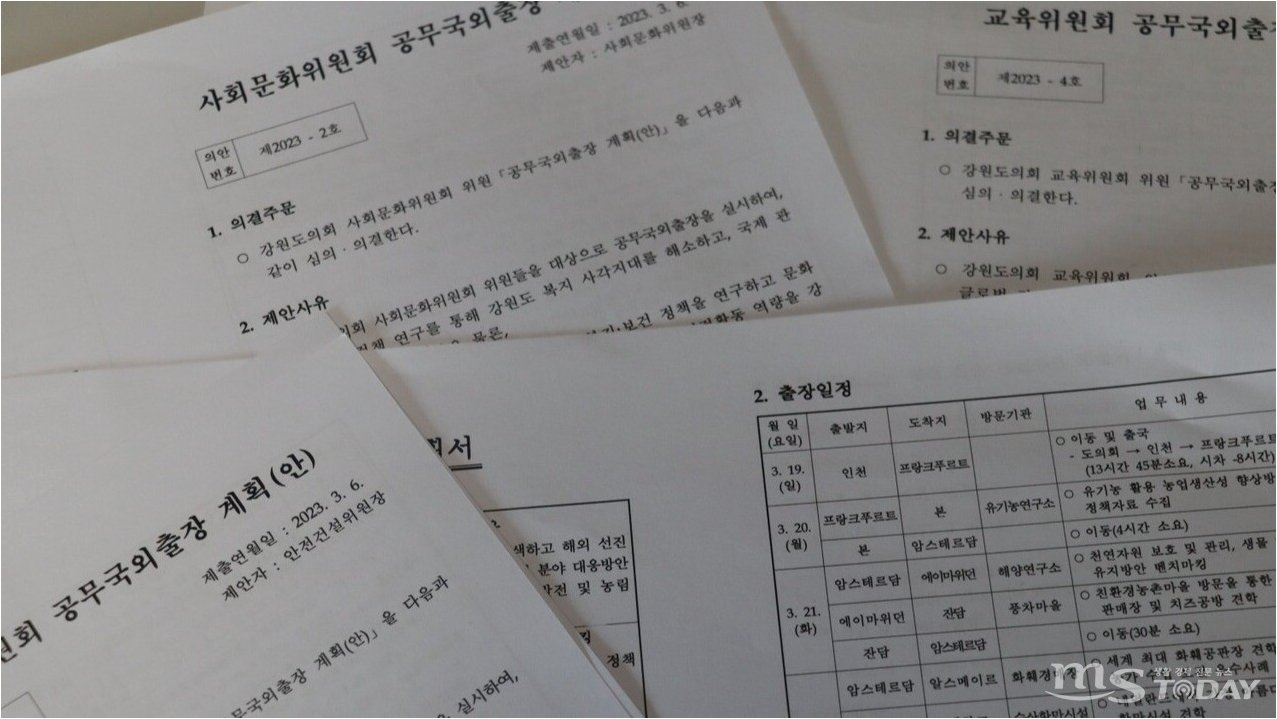 사회문화위원회 공무국외출장
제출연월일 : 2023. 3. 6.
제안자 : 사회문화위원장
의안
번호
제2023 - 2호
1. 의결주문
○ 강원도의회 사회문화위원회 위원「공무국외출장 계획(안)」을 다음과
같이 심의 · 의결한다.
2. 제안사유
사회문화위원회 위원들을 대상으로 공무국외출장을 실시하여,
연구를 통해 강원도 복지 사각지대를 해소하고, 국제 관
물론,
정책을 연구하고 문화
역량을 강
교육위원회 공무국외출
의안
번호
제2023 - 4호
1. 의결주문
○ 강원도의회 교육위원회 위원「공무국외출장
심의 · 의결한다.
2. 제안사유
○ 강원도의회 교육위원회
글로벌
공무국외출장 계획(안)
제출연월일 : 2023. 3. 6.
제안자 : 안전건설위원장
공무국외출장 계획(안)」을 다음과
공무국외출장을 실시하여,
하고 해외 선진
분야 대응방안
및 농림
정책
2. 출장일정
월 일
(요일)
출발지
도착지
방문기관
업 무 내 용
3. 19.
(일)
인천
프랑크푸르트
○ 이동 및 출국
- 도의회 → 인천 → 프랑크푸르트
(13시간 45분소요, 시차 -8시간)
3. 20.
(월)
프랑크푸르트
본
유기농연구소
○ 유기농 활용 농업생산성 향상방
정책자료 수집
본
암스테르담
○ 이동(4시간 소요)
3. 21.
(화)
암스테르담
에이마위던
해양연구소
○ 천연자원 보호 및 관리, 생물
유지방안 벤치마킹
에이마위던
잔담
풍차마을
○ 친환경농촌마을 방문을 통한
판매장 및 치즈공방 견학
잔담
암스테르담
○ 이동(30분 소요)
암스테르담
알스메이르
화훼경매장
○ 세계 최대 화훼공판장 견학
수산항만시설
항만시설 견학
생활 경제 전문 뉴스
ms TODAY